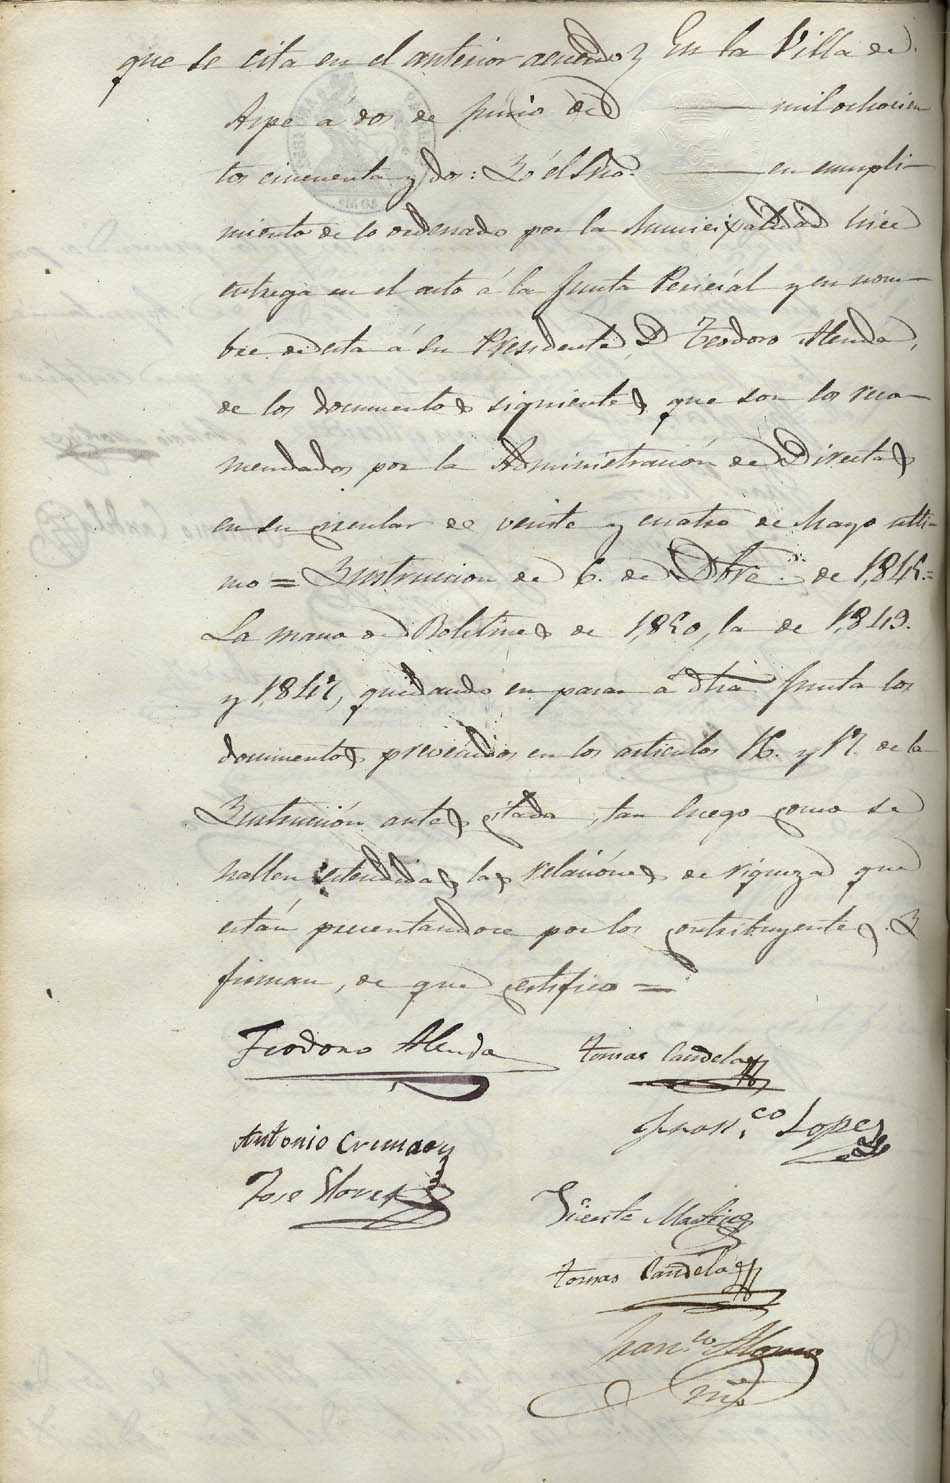 que se cita en el anterior acuerdo } En la Villa de
Aspe á dos de Junio de mil ochocien
tos cincuenta y dos: Yo el Srio. en cumpli-
miento de lo ordenado por la Municipalidad hice
entrega en el acto á la Junta Pericial y en nom-
bre de esta á su Presidente D Teodoro Alenda,
de los documentos siguientes que son los reco-
mendados por la Administración de Directas
en su circular de veinte y cuatro de Mayo ulti-
mo = Instruccion de 6. de Dbre. de 1,845.=
La mano de Boletines de 1,850, la de 1,849.
y 1,847, quedando en pasar á dha Junta los
documentos prevenidos en los articulos 16. y 17. de la
Instrucción antes citada, tan luego como se
hallen estendidas las relaciónes de riqueza que
están presentandose por los contribuyentes. I
firman, de que certifico =
Teodoro Alenda
tomas Candela
Franco. Lopez
Antonio Cremades
Jose
Vicente
tomas Candela
Franco.